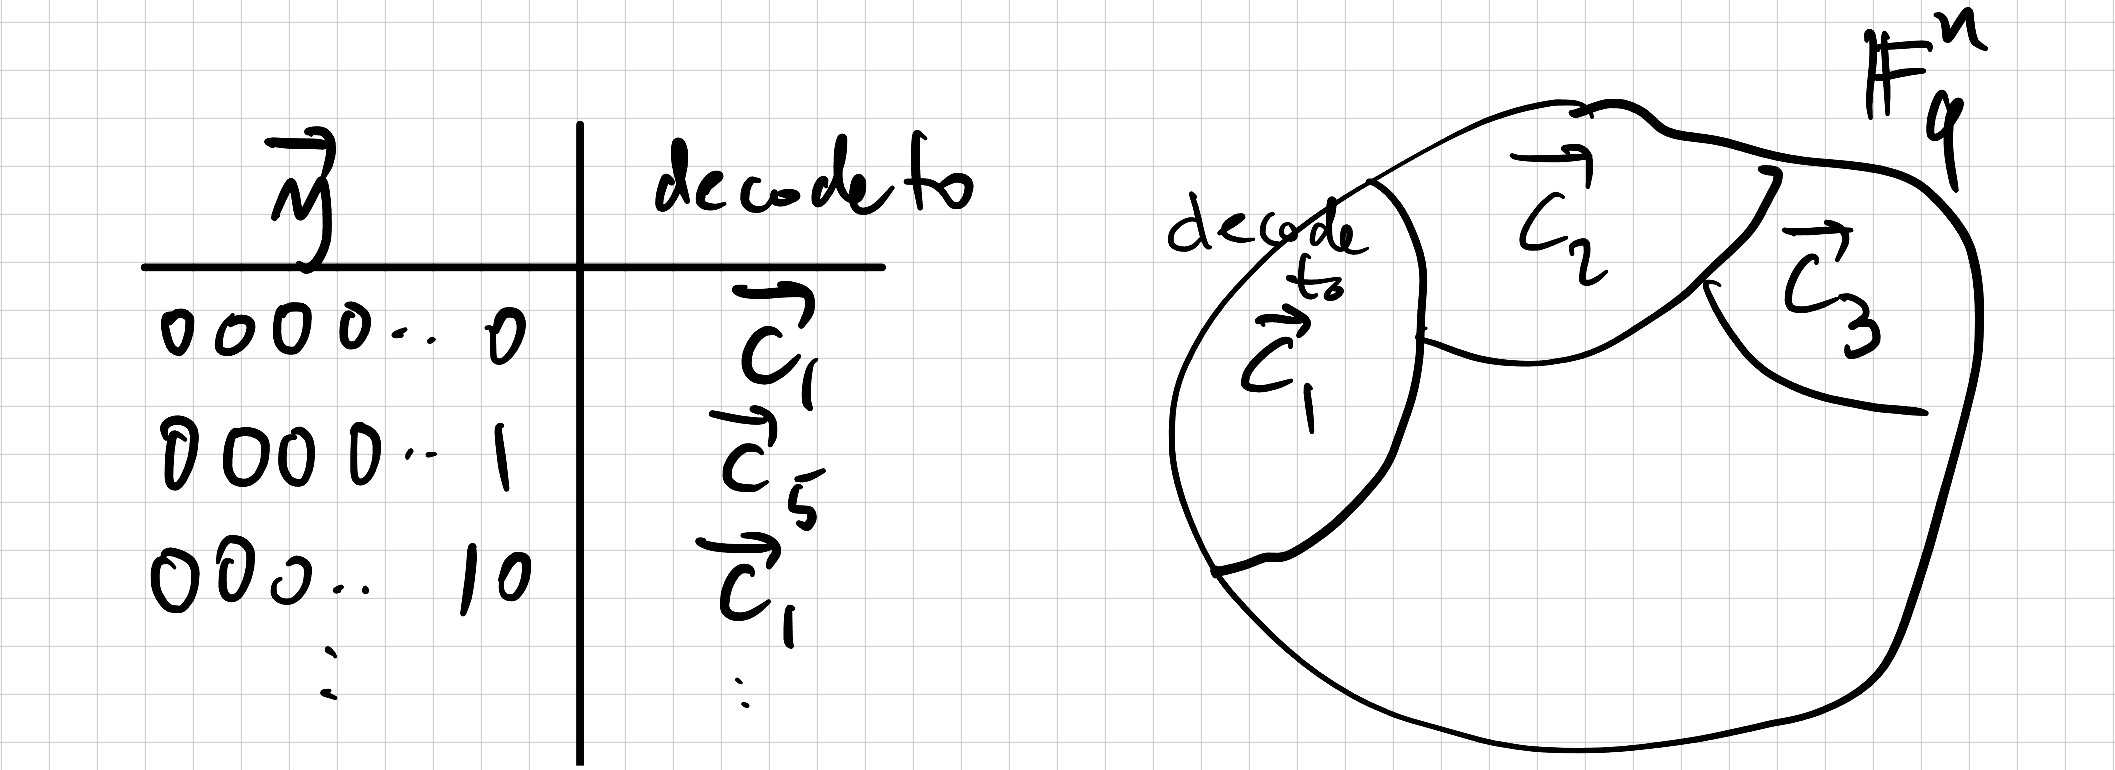 y⃗ decode to
0000.. 0 c⃗₁
0000.. 1 c⃗₅
000.. 10 c⃗₁
: :
𝔽_q^n
decode
to
c⃗₁
c⃗₂
c⃗₃